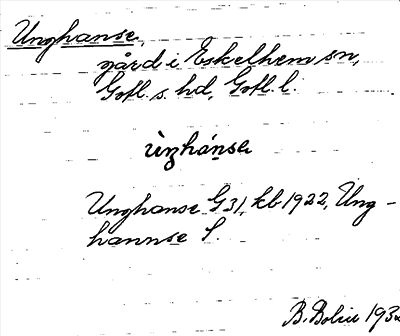 Unghanse,
gård i Eskelhem sn,
Gotl. s. hd, Gotl. l.
ùŋhánsɐ
Unghanse G 31, kb 1922, Ung-
hannse S.
B. Bolin 193